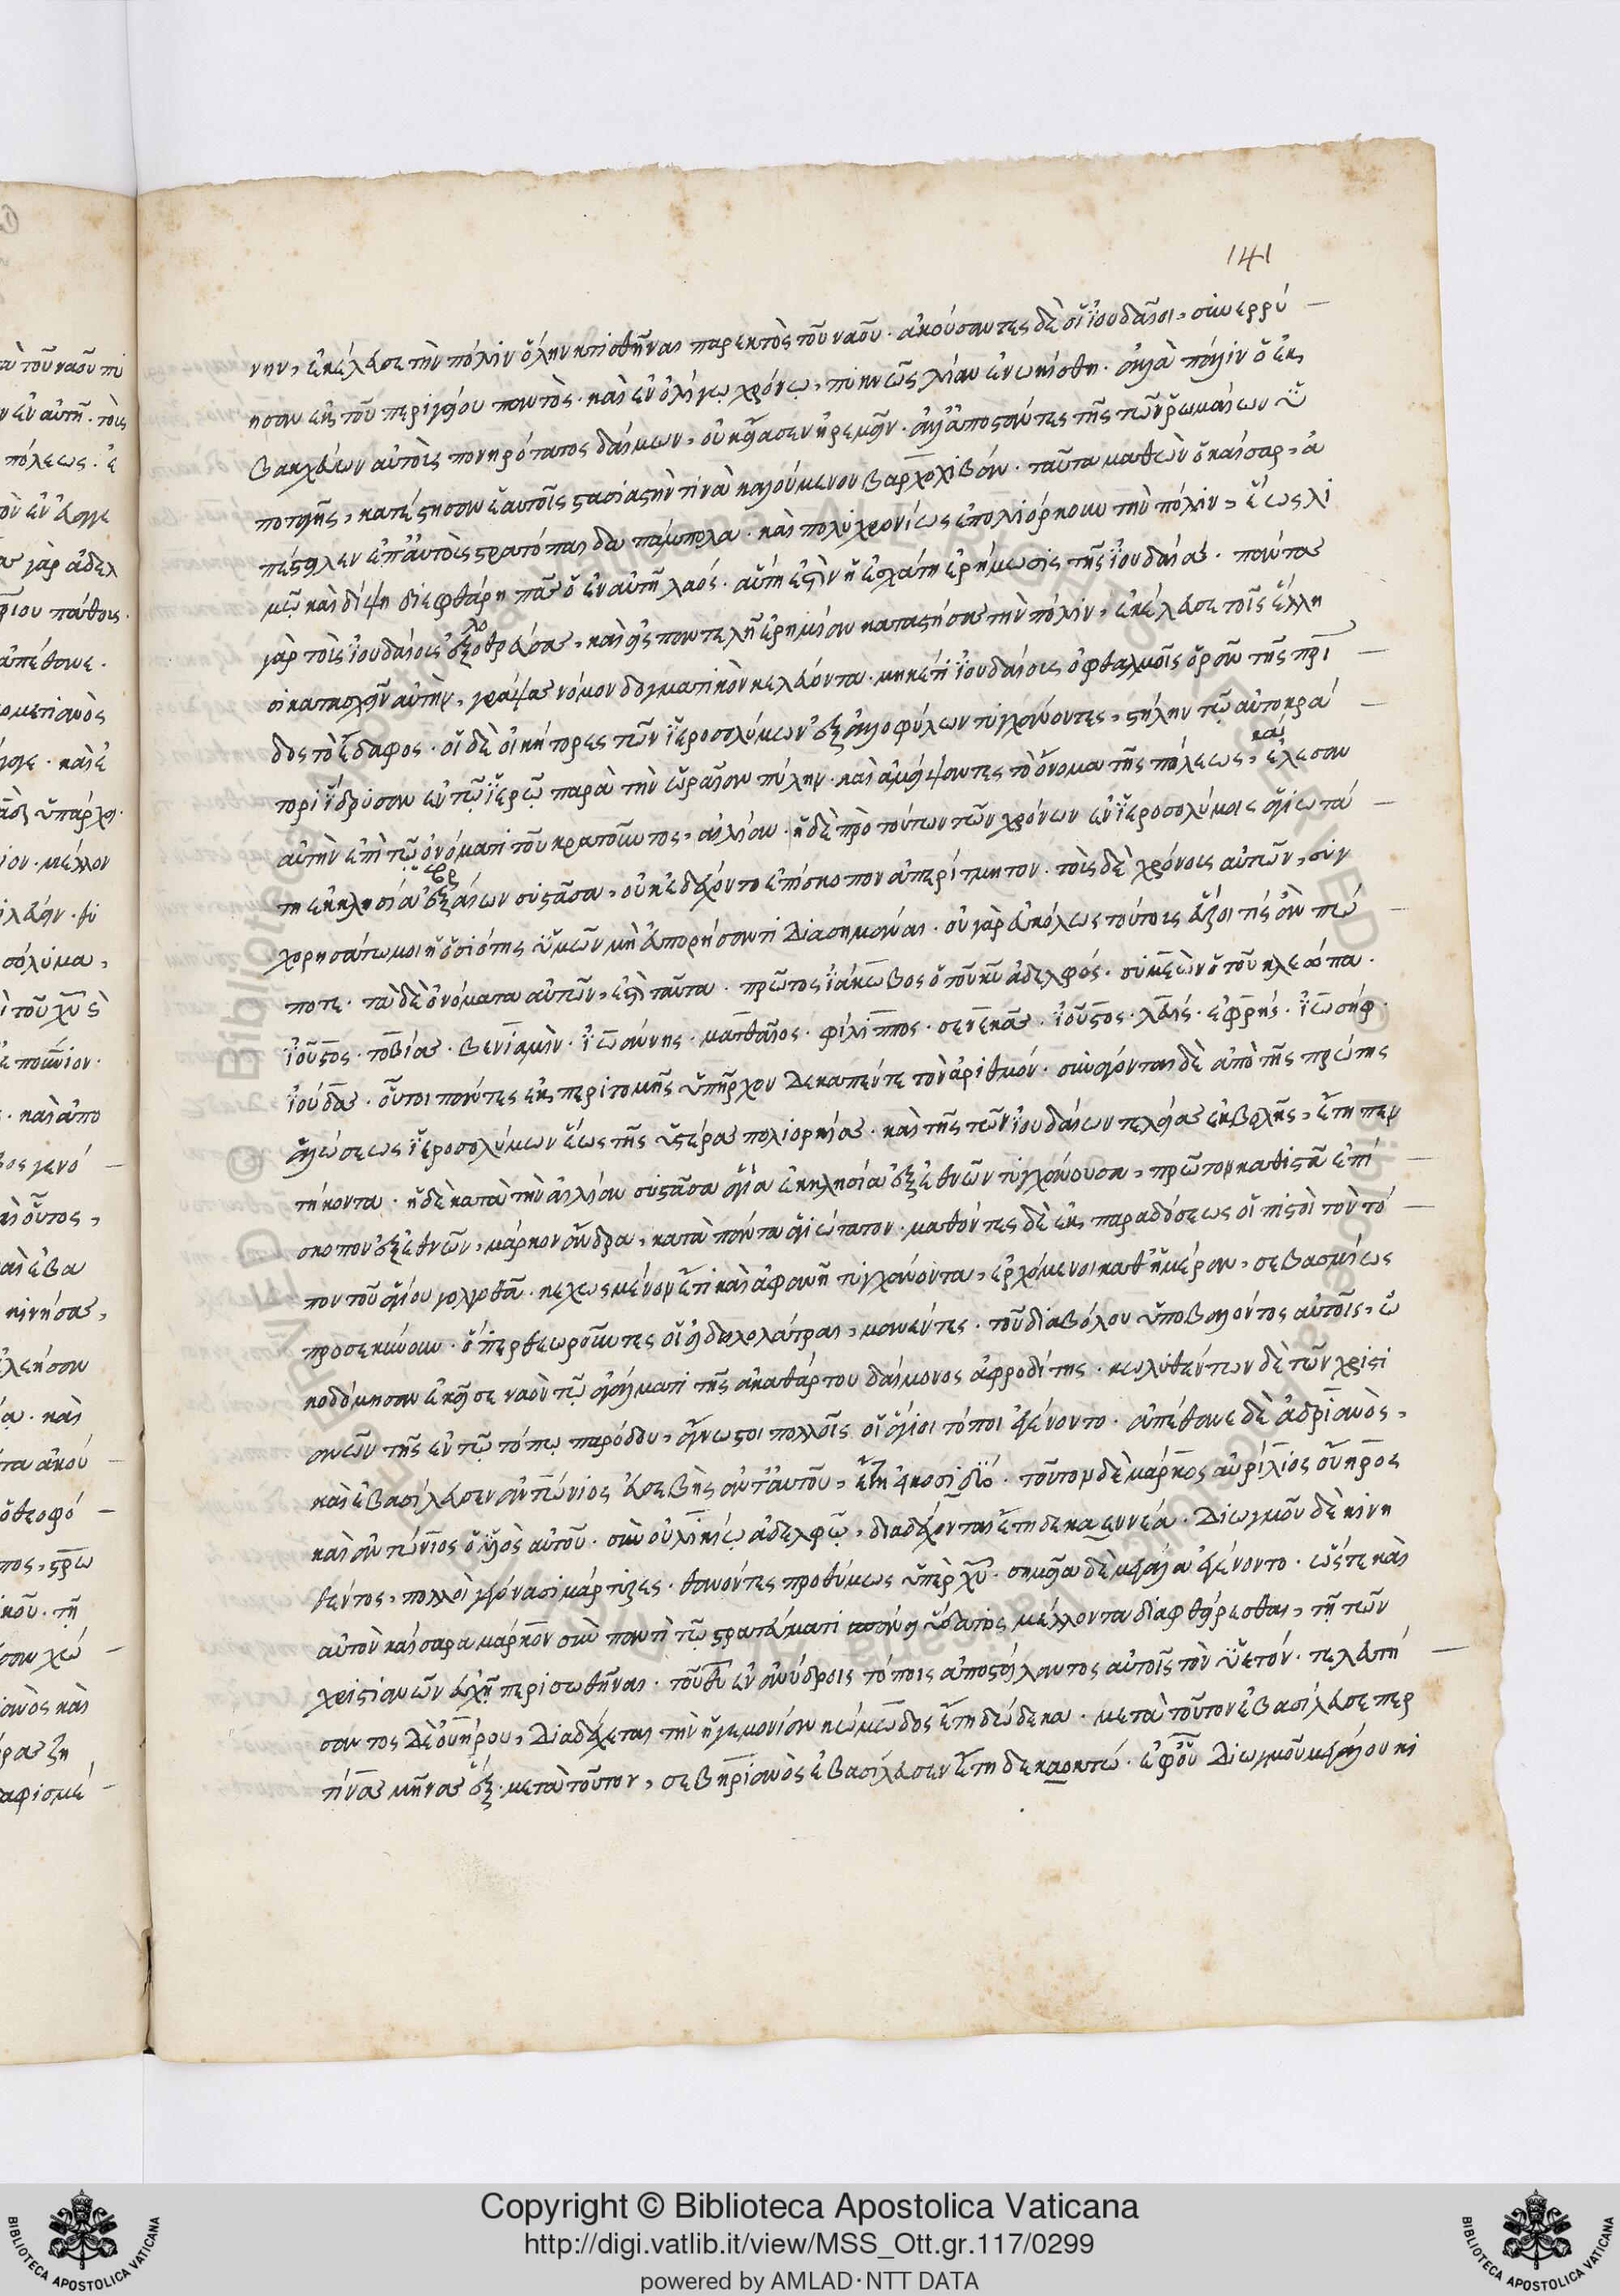 141
νην, ἐκέλευσε τὴν πόλιν ὅλην κτισθῆναι παρεκτὸς τοῦ ναοῦ. ἀκούσαντες δὲ οἱ ἰουδαῖοι, συνερρύ
ησαν ἐκ τοῦ περιγείου παντὸς. καὶ ἐν ὀλίγῳ χρόνῳ, πυκνῶς λίαν ἐνωκίσθη. ἀλλὰ πάλιν ὁ ἐκ
βακχεύων αὐτοὺς πονηρότατος δαίμων, οὐκ εἴασεν ἠρεμεῖν. ἀλλ' ἀποστάντες τῆς τῶν ῥωμαίων ὑ
ποταγῆς, κατέστησαν ἑαυτοῖς στασιαστήν τινὰ καλούμενον βαρχοχιβάν. ταῦτα μαθὼν ὁ καίσαρ, ἀ
πέστειλεν ἐπ' αὐτοὺς στρατόπαιδα πάμπολα. καὶ πολυχρονίως ἐπολιόρκουν τὴν πόλιν, ἕως λι
μῷ καὶ δίψῃ διεφθάρη πᾶς ὁ ἐν αὐτῇ λαός. αὕτη ἐστὶν ἡ ἐσχάτη ἐρήμωσις τῆς ἰουδαίας. πάντας
γὰρ τοὺς ἰουδαίους ἐξολοθρεύσας, καὶ εἰς παντελῆ ἐρημίαν καταστήσας τὴν πόλιν, ἐκέλευσε τοῖς ἕλλη
σι κατασχεῖν αὐτὴν, γράψας νόμον δογματικὸν κελεύοντα. μηκέτι ἰουδαίους ὀφθαλμοῖς ὁρᾶν τῆς πρι
δος τὸ ἔδαφος. οἱ δὲ οἰκήτορες τῶν ἱεροσολύμων ἐξ ἀλλοφύλων τυγχάνοντες, στήλην τῷ αὐτοκρά
τορι ἵδρυσαν ἐν τῷ ἱερῷ παρὰ τὴν ὡραῖαν πύλην. καὶ ἀμείψαντες τὸ ὄνομα τῆς πόλεως, ἐκάλεσαν
αὐτὴν ἐπὶ τῷ ὀνόματι τοῦ κρατοῦντος, αἰλίαν. ἡ δὲ πρὸ τούτων τῶν χρόνων ἐν ἱεροσολύμοις ἁγιωτά
τη ἐκκλησία ἐξ ἑβραίων συστᾶσα, οὐκ ἐδέχοντο ἐπίσκοπον ἀπερίτμητον. τοὺς δὲ χρόνους αὐτῶν, συγ
χωρησάτω μοι ἡ ὁσιότης ὑμῶν μὴ εὐπορήσαντι διασημᾶναι. οὐ γὰρ εὐκόλως τούτοις εὕροι τίς ἂν πώ
ποτε. τὰ δὲ ὀνόματα αὐτῶν, ἐστὶ ταῦτα. πρῶτος ἰάκωβος ὁ τοῦ κυ ἀδελφός. συμεὼν ὁ τοῦ κλεόπα.
ἰοῦστος. τοβίας. βενιαμὶν. ἰωάννης. ματθαῖος. φίλιππος. σενεκᾶς. ἰοῦστος. λευίς. ἐφρής. ἰωσήφ.
ἰούδας. οὗτοι πάντες ἐκ περιτομῆς ὑπῆρχον δεκαπέντε τὸν ἀριθμόν. συνάγονται δὲ ἀπὸ τῆς πρώτης
ἁλώσεως ἱεροσολύμων ἕως τῆς ὑστέρας πολιορκίας. καὶ τῆς τῶν ἰουδαίων τελείας ἐκβολῆς, ἔτη πεν
τήκοντα. ἡ δὲ κατὰ τὴν αἰλίαν συστᾶσα ἁγία ἐκκλησία ἐξ ἐθνῶν τυγχάνουσα, πρῶτον καθιστᾶ ἐπί
σκοπον ἐξ ἐθνῶν, μάρκον ἄνδρα, κατὰ πάντα ἁγιώτατον. μαθόντες δὲ ἐκ παραδόσεως οἱ πιστοὶ τὸν τό
πον τοῦ ἁγίου γολγοθᾶ. κεχωσμένον ἔτι καὶ ἀφανῆ τυγχάνοντα, ἐρχόμενοι καθ' ἡμέραν, σεβασμίως
προσεκύνουν. ὅπερ θεωροῦντες οἱ εἰδωλολάτραι, μανέντες. τοῦ διαβόλου ὑποβαλόντος αὐτοῖς, ᾠ
κοδόμησαν ἐκεῖσε ναὸν τῷ ἀγάλματι τῆς ἀκαθάρτου δαίμονος ἀφροδίτης. κωλυθέντων δὲ τῶν χριστι
ανῶν τῆς ἐν τῷ τόπῳ παρόδου, ἄγνωστοι πολλοῖς οἱ ἅγιοι τόποι ἐγένοντο. ἀπέθανε δὲ ἀδριανὸς,
καὶ ἐβασίλευσεν ἀντώνιος εὐσεβὴς ἀντ' αὐτοῦ, ἔτη εἰκοσιδύο. τοῦτον δὲ μάρκος αὐρίλιος οὔηρος
καὶ ἀντώνιος ὁ υἱὸς αὐτοῦ. σὺν οὐλικίῳ ἀδελφῷ, διαδέχονται ἔτη δεκαεννέα. διωγμοῦ δὲ κινη
θέντος, πολλοὶ γεγόνασι μάρτυρες. θανόντες προθύμως ὑπὲρ χυ. σημεῖα δὲ μεγάλα ἐγένοντο. ὥστε καὶ
αὐτὸν καίσαρα μάρκον σὺν παντὶ τῷ στρατεύματι σπάνει ὕδατος μέλλοντα διαφθείρεσθαι, τῇ τῶν
χριστιανῶν εὐχῇ περισωθῆναι. τοῦ θυ ἐν ἀνύδροις τόποις ἀποστείλαντος αὐτοῖς τὸν ὑετόν. τελευτή
σαντος δὲ οὐήρου, διαδέχεται τὴν ἡγεμονίαν κώμωδος ἔτη δώδεκα. μετὰ τοῦτον ἐβασίλευσε περ
τίνας μῆνας ἕξ. μετὰ τοῦτον, σεβηριανὸς ἐβασίλευσεν ἔτη δεκαοκτώ. ἐφ' οὗ διωγμοῦ μεγάλου κι
Copyright © Biblioteca Apostolica Vaticana
http://digi.vatlib.it/view/MSS_Ott.gr.117/0299
powered by AMLAD·NTT DATA